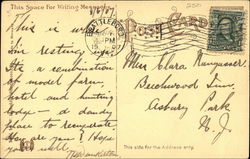 This Space for Writing Messages
POST CARD
BRATTLEBORO
PM
This is where
I'm resting up.
It's a combination
of model farm,
hotel and hunting
lodge - a dandy
place to recuperate
How are you? I hope
you're well.
Miss Clara Nungasser
Beechwood Inn,
Asbury Park
N.J.
This side for the Address only.